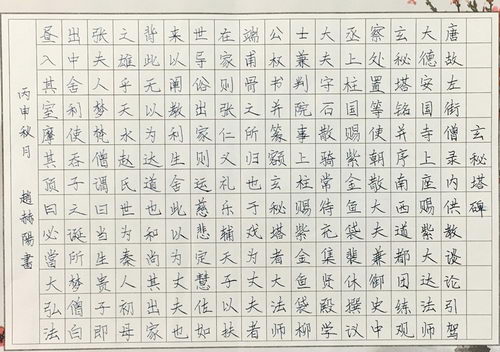 玄秘塔碑
唐故左街僧录内供教谈论引驾
大德安国寺上座赐紫大达法师
玄秘塔铭并序南西道都团练观
察处置等使朝散大夫兼御史中
丞上柱国赐紫金鱼袋裴休撰议
大夫字石散骑常待充集贤殿学
士兼判院事上柱赐紫金鱼袋柳
公权书并篆额玄秘塔者大法师
端甫骨文所归也于戏为丈夫者
在家则张仁义礼乐辅天子以扶
世导俗出家则运慈悲定慧佐如
来以阐教利生舍此以为丈夫也
背此无以为达道也和尚其出家
之雄乎天水赵氏世为秦人初母
张夫人梦梵僧谓曰当生贵子即
出中舍利使吞子之诞所梦僧白
昼入其室摩其顶曰必当大弘法
丙申秋月 趙赫陽書